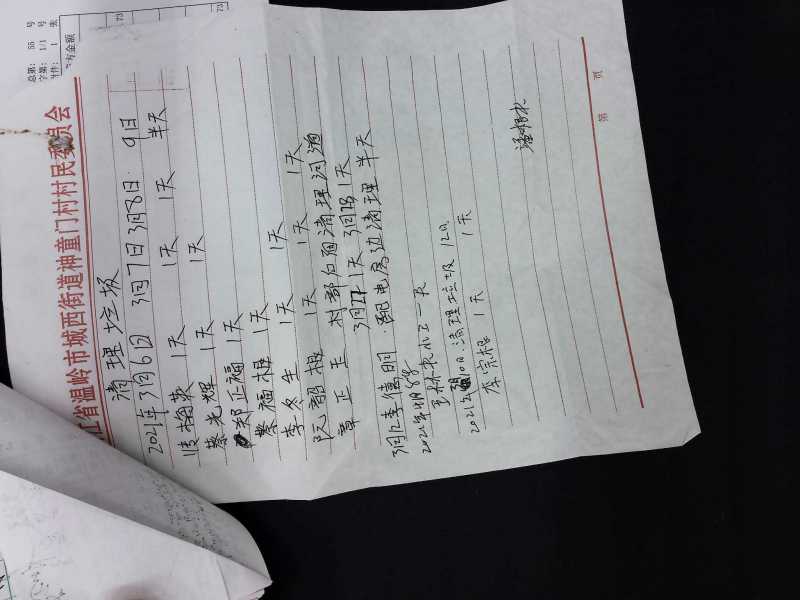 江省温岭市城西街道神童门村村民委员会
清理垃圾
2021年3月6日 3月7日 3月8日 9日
1天 1天 1天 半天
蔡光辉 1天 1天
郑正福 1天
蔡福根 1天 1天
李冬生 1天 1天 1天
阮韶根 1天
章正玉 村部后面清理河道
3月27 1天 3月28 1天
李儒明 配电房边清理 半天
2021年4月8号
水工一天
2021年 10日清理垃圾 12日
李宗福 1天 1天
第 页
总第: 55 号
字第: 1/1 号
附件: 1 张
方金额
73
73